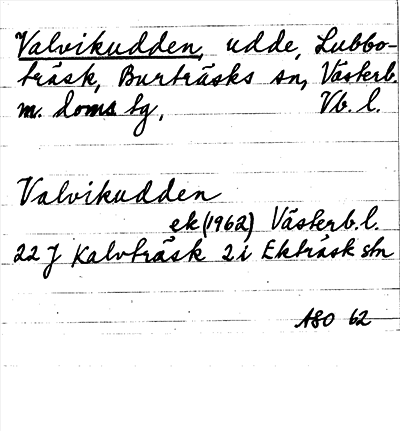 Valvikudden, udde, Lubbo-
träsk, Burträsks sn, Västerb.
m. doms bg, Vb. l.
Valvikudden
ek (1962) Västerb. l.
22 J Kalvträsk 2 i Ekträsk stn
ASO 62